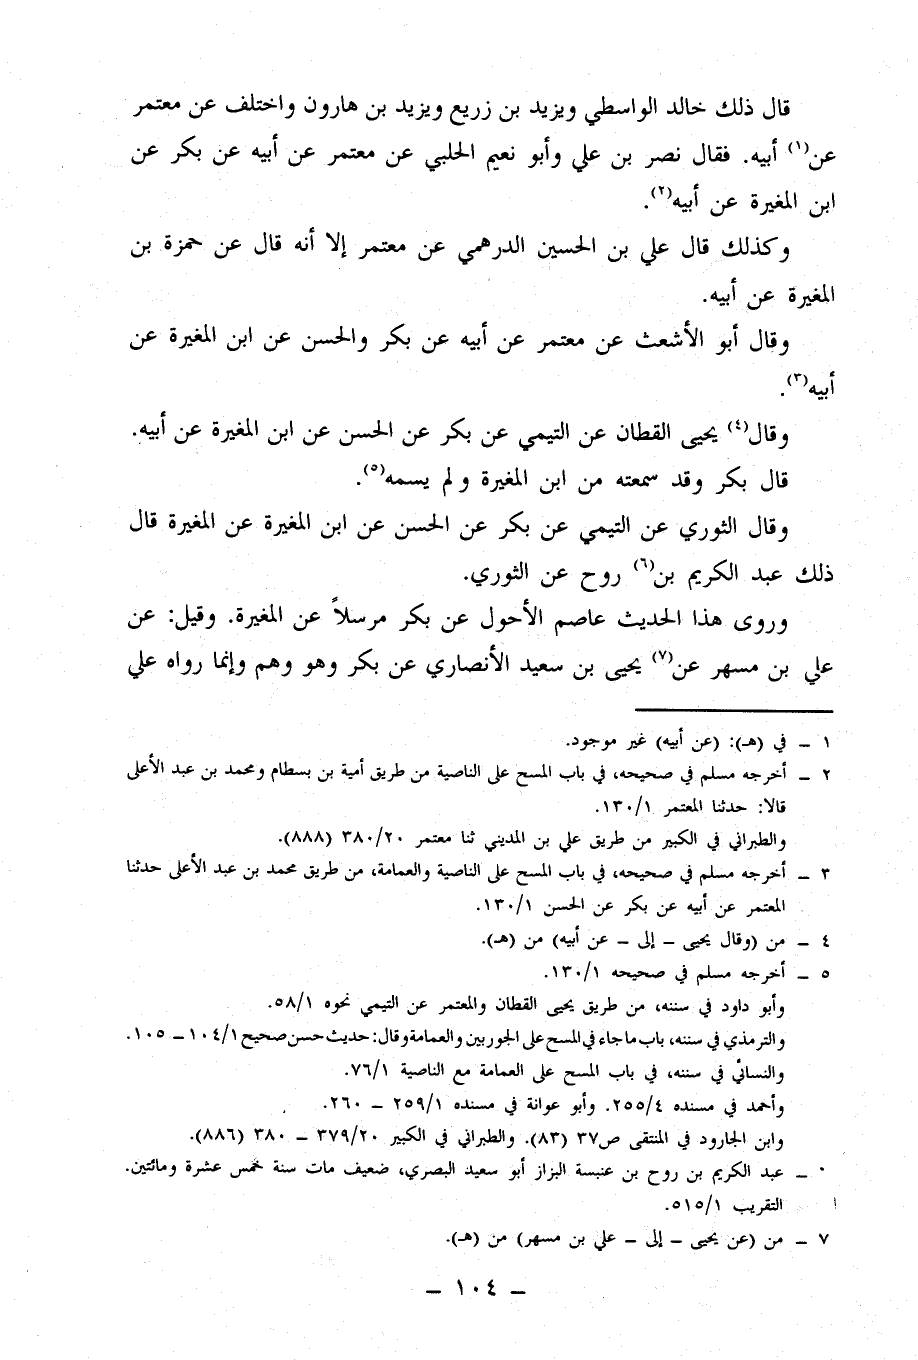 قال ذلك خالد الواسطي ويزيد بن زريع ويزيد بن هارون واختلف عن معتمر
عن(١) أبيه. فقال نصر بن علي وأبو نعيم الحلبي عن معتمر عن أبيه عن بكر عن
ابن المغيرة عن أبيه(٢).
وكذلك قال علي بن الحسين الدرهمي عن معتمر إلا أنه قال عن حمزة بن
المغيرة عن أبيه.
وقال أبو الأشعث عن معتمر عن أبيه عن بكر والحسن عن ابن المغيرة عن
أبيه(٣).
وقال(٤) يحيى القطان عن التيمي عن بكر عن الحسن عن ابن المغيرة عن أبيه.
قال بكر وقد سمعته من ابن المغيرة ولم يسمه(٥).
وقال الثوري عن التيمي عن بكر عن الحسن عن ابن المغيرة عن المغيرة قال
ذلك عبد الكريم بن(٦) روح عن الثوري.
وروى هذا الحديث عاصم الأحول عن بكر مرسلاً عن المغيرة. وقيل: عن
علي بن مسهر عن(٧) يحيى بن سعيد الأنصاري عن بكر وهو وهم وإنما رواه علي
١ ـ في (هـ): (عن أبيه) غير موجود.
٢ ـ أخرجه مسلم في صحيحه، في باب المسح على الناصية من طريق أمية بن بسطام ومحمد بن عبد الأعلى
قالا: حدثنا المعتمر ١٣٠/١.
والطبراني في الكبير من طريق علي بن المديني ثنا معتمر ٣٨٠/٢٠ (٨٨٨).
٣ ـ أخرجه مسلم في صحيحه، في باب المسح على الناصية والعمامة، من طريق محمد بن عبد الأعلى حدثنا
المعتمر عن أبيه عن بكر عن الحسن ١٣٠/١.
٤ ـ من (وقال يحيى ـ إلى ـ عن أبيه) من (هـ).
٥ ـ أخرجه مسلم في صحيحه ١٣٠/١.
وأبو داود في سننه، من طريق يحيى القطان والمعتمر عن التيمي نحوه ٥٨/١.
والترمذي في سننه، باب ما جاء في المسح على الجوربين والعمامة وقال: حديث حسن صحيح ١٠٤/١ ـ ١٠٥.
والنسائي في سننه، في باب المسح على العمامة مع الناصية ٧٦/١.
وأحمد في مسنده ٢٥٥/٤. وأبو عوانة في مسنده ٢٥٩/١ ـ ٢٦٠.
وابن الجارود في المنتقى ص٣٧ (٨٣). والطبراني في الكبير ٣٧٩/٢٠ ـ ٣٨٠ (٨٨٦).
ـ عبد الكريم بن روح بن عنبسة البزاز أبو سعيد البصري، ضعيف مات سنة خمس عشرة ومائتين.
التقريب ٥١٥/١.
٧ ـ من (عن يحيى ـ إلى ـ علي بن مسهر) من (هـ).
ـ ١٠٤ ـ